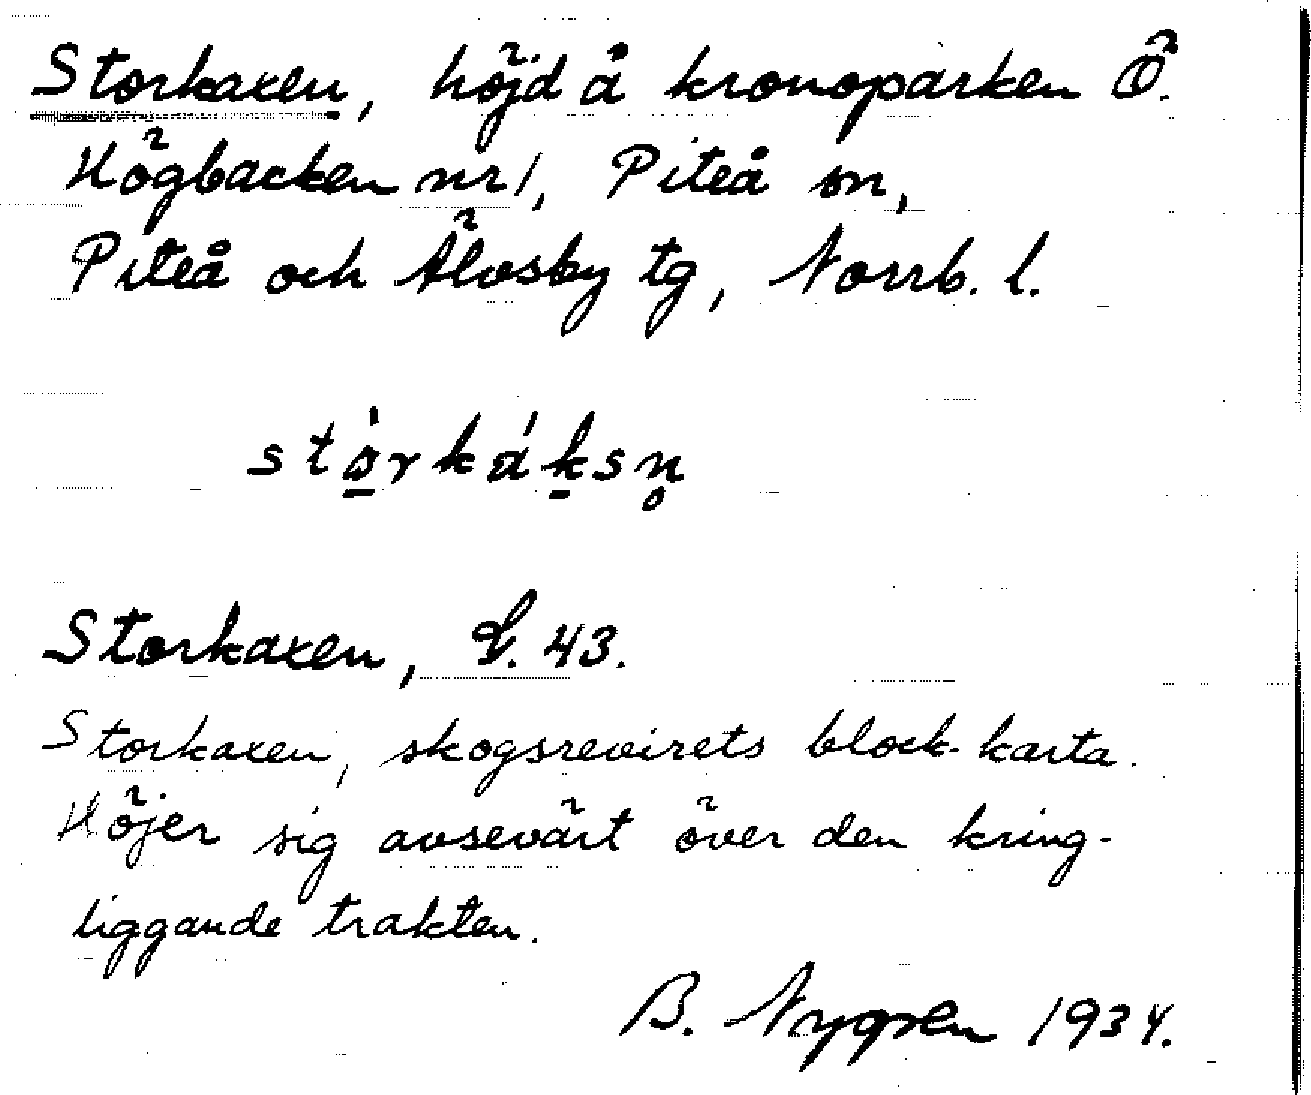 Storkaxen, höjd å kronoparken Ö.
Högbacken nr 1, Piteå sn,
Piteå och Älvsby tg, Norrb. l.
stó̱rkáḵsn̥
Storkaxen, 43.
Storkaxen, skogsrevirets block-karta.
Höjer sig avsevärt över den kring-
liggande trakten.
B. Nygren 1934.